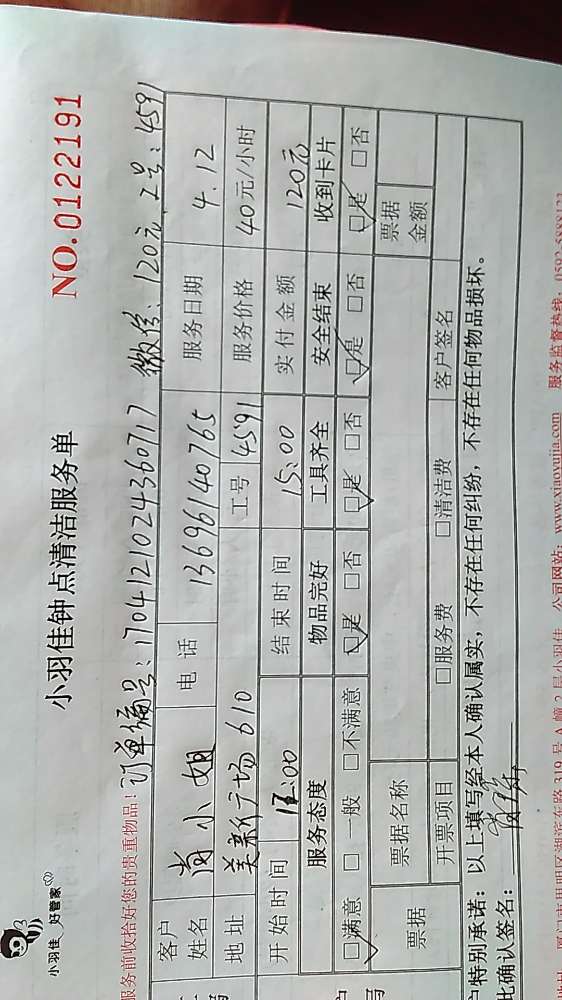 小羽佳 好管家
小羽佳钟点清洁服务单
NO.0122191
服务前收拾好您的贵重物品！
订单编号：1704121024360717 微信：120元 工号：4591
客户姓名 肖小姐 电话 13696140765 服务日期 4.12
地址 美新广场610 工号 4591 服务价格 40元/小时
开始时间 12:00 结束时间 15:00 实付金额 120元
服务态度 物品完好 工具齐全 安全结束 收到卡片
☑满意 □一般 □不满意 ☑是 □否 ☑是 □否 ☑是 □否 ☑是 □否
票据 票据名称 票据金额
开票项目 □服务费 □清洁费 客户签名
户特别承诺：以上填写经本人确认属实，不存在任何纠纷，不存在任何物品损坏。
比确认签名：
319号A幢2层小羽佳 公司网站：www.xiaoyujia.com 服务监督热线：0592-5888123